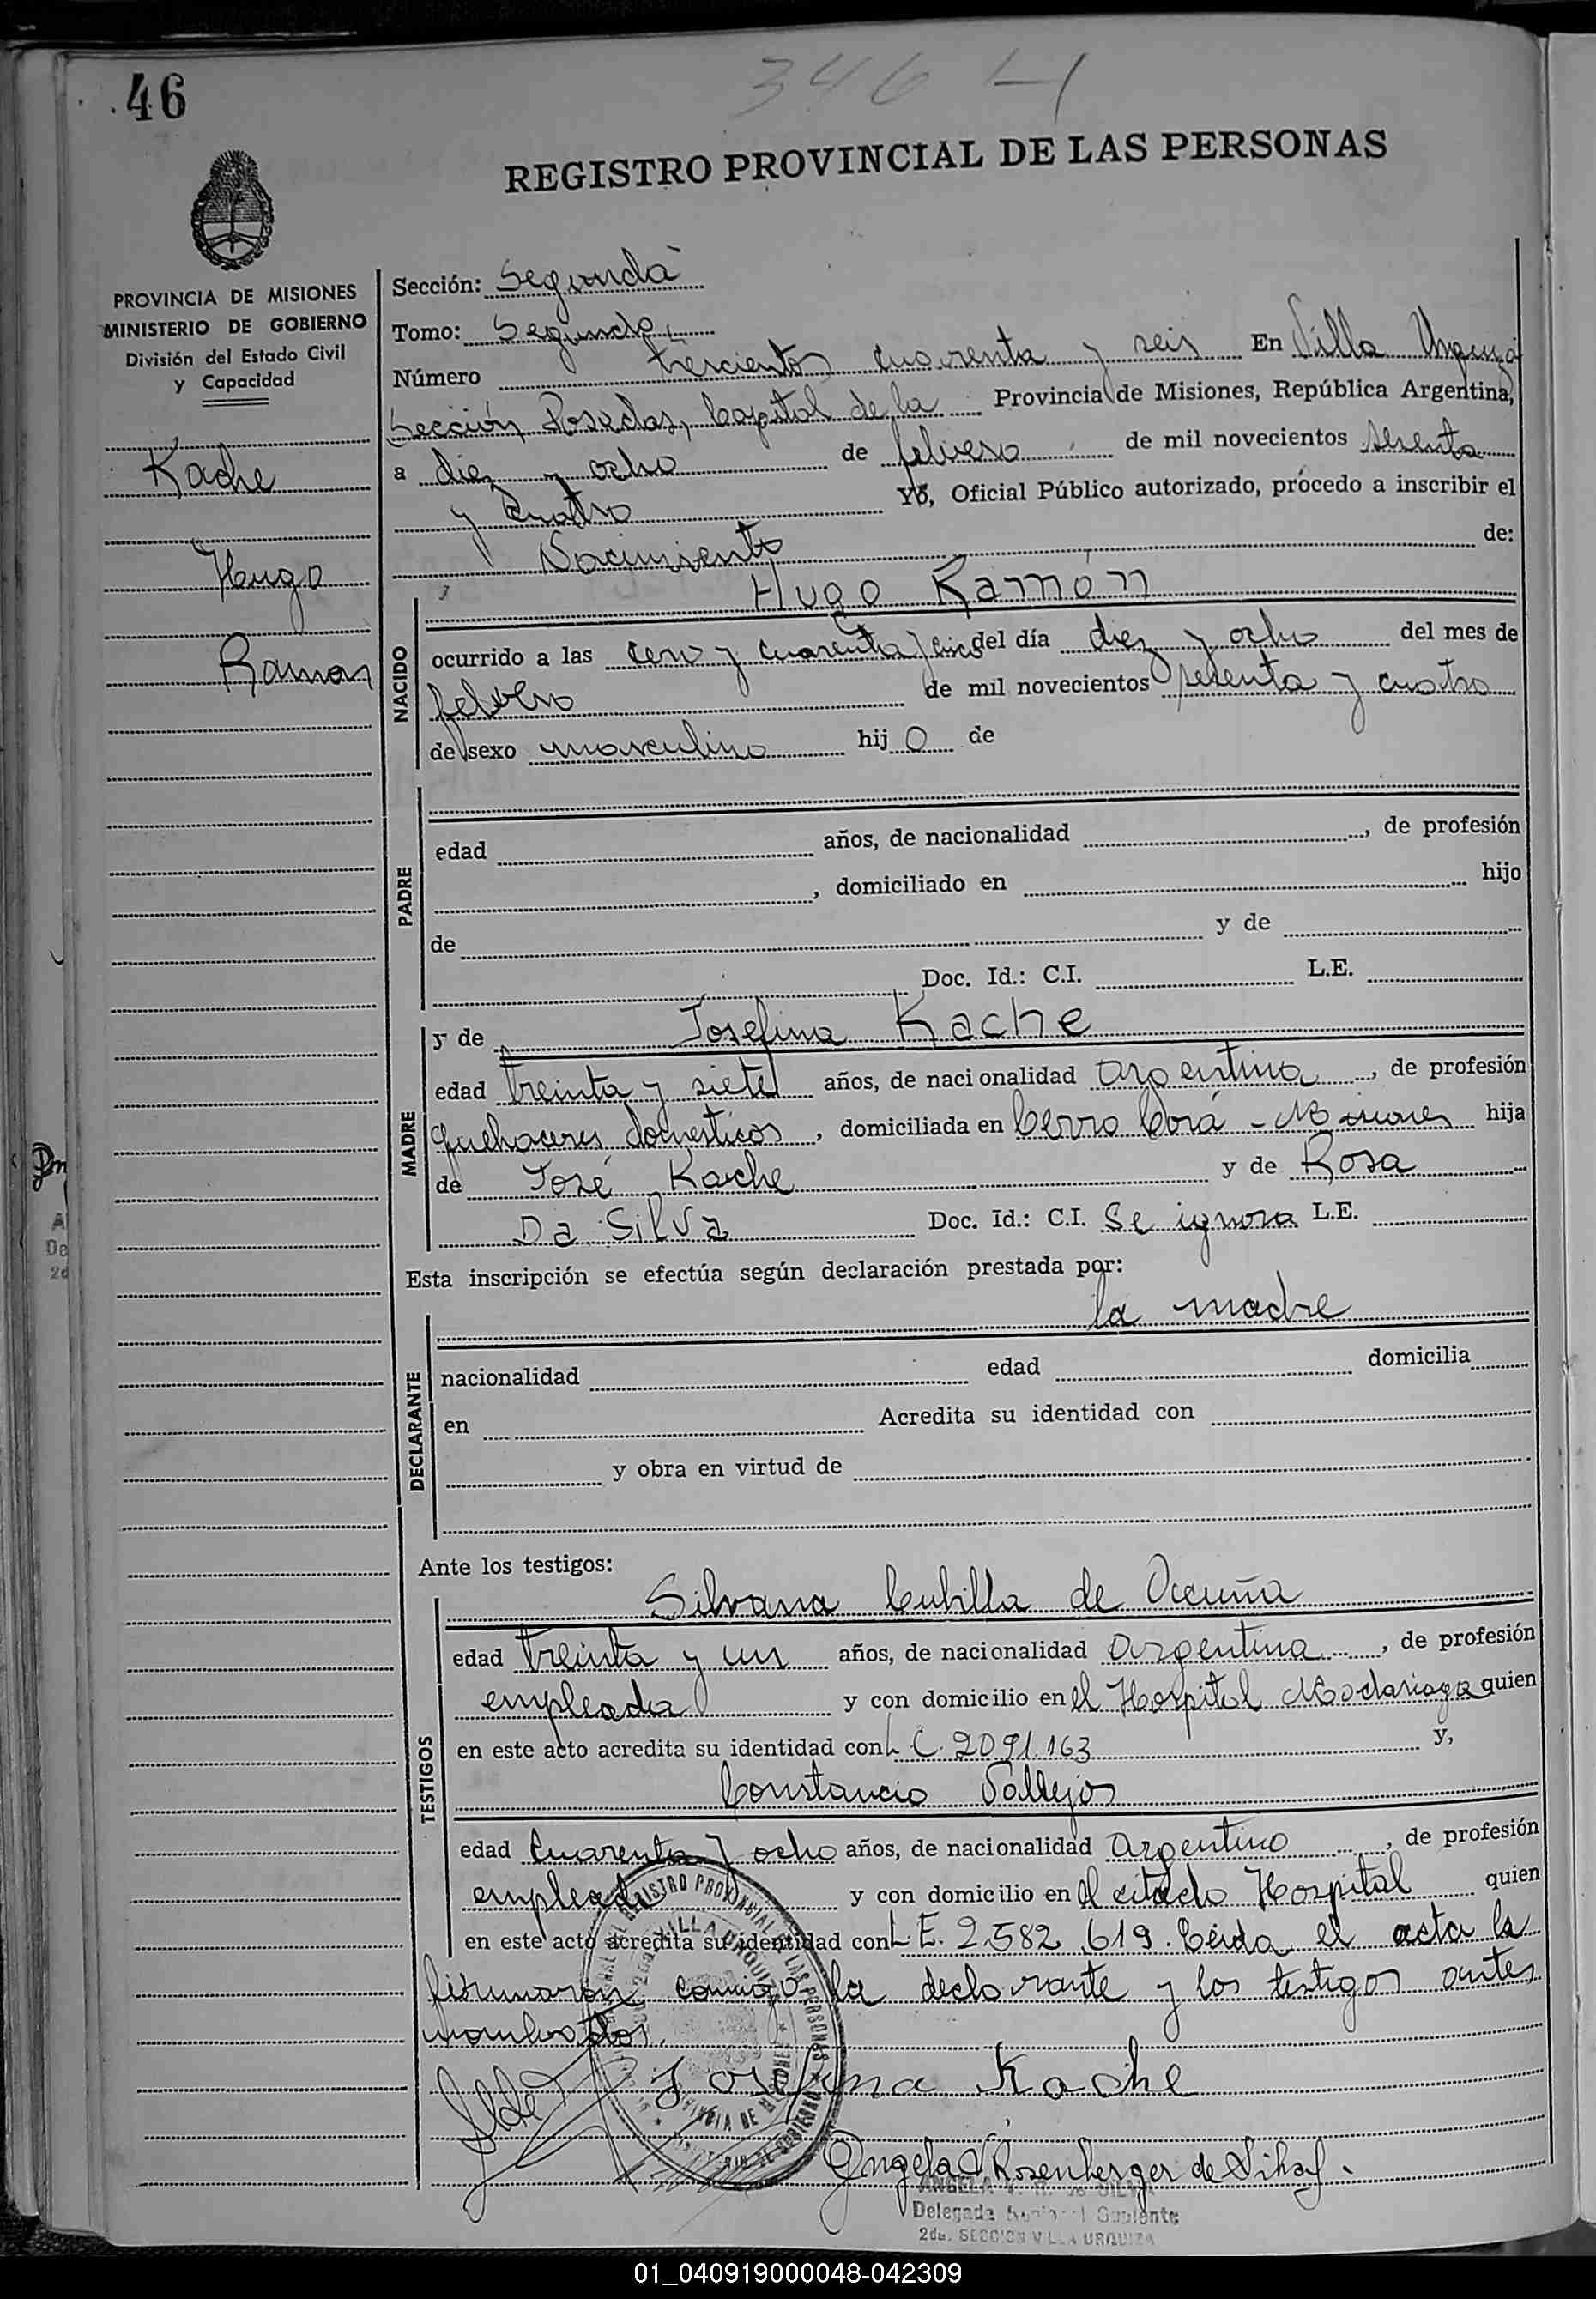 46
346 H
REGISTRO PROVINCIAL DE LAS PERSONAS
PROVINCIA DE MISIONES
MINISTERIO DE GOBIERNO
División del Estado Civil
y Capacidad
Kache
Hugo
Ramon
Sección: Segunda
Tomo: Segundo
Número trescientos cuarenta y seis En Villa Urquiza
Sección Posadas, Capital de la Provincia de Misiones, República Argentina,
a diez y ocho de febrero de mil novecientos sesenta
y cuatro Yo, Oficial Público autorizado, procedo a inscribir el
Nacimiento de:
Hugo Ramón
NACIDO
ocurrido a las cero y cuarenta y cinco del día diez y ocho del mes de
febrero de mil novecientos sesenta y cuatro
de sexo masculino hijo de
PADRE
edad años, de nacionalidad , de profesión
, domiciliado en hijo
de y de
Doc. Id.: C.I. L.E.
MADRE
y de Josefina Kache
edad treinta y siete años, de nacionalidad argentina, de profesión
quehaceres domésticos, domiciliada en Cerro Corá - Misiones hija
de José Kache y de Rosa
Da Silva Doc. Id.: C.I. Se ignora L.E.
Esta inscripción se efectúa según declaración prestada por:
la madre
DECLARANTE
nacionalidad edad domicilia
en Acredita su identidad con
y obra en virtud de
Ante los testigos:
TESTIGOS
Silvana Cubilla de Ocuña
edad treinta y un años, de nacionalidad argentina, de profesión
empleada y con domicilio en el Hospital Madariaga quien
en este acto acredita su identidad con L C. 2091.163 y,
Constancio Vallejos
edad cuarenta y ocho años, de nacionalidad argentino, de profesión
empleado y con domicilio en el citado Hospital quien
en este acto acredita su identidad con L E. 2.582.619. Leída el acta la
firmaron conmigo la declarante y los testigos antes
nombrados.
Josefina Kache
Angela V Rosenberger de Silva.
ANGELA V. R. de SILVA
Delegada Suplente
2da. SECCION VILLA URQUIZA
01_040919000048-042309